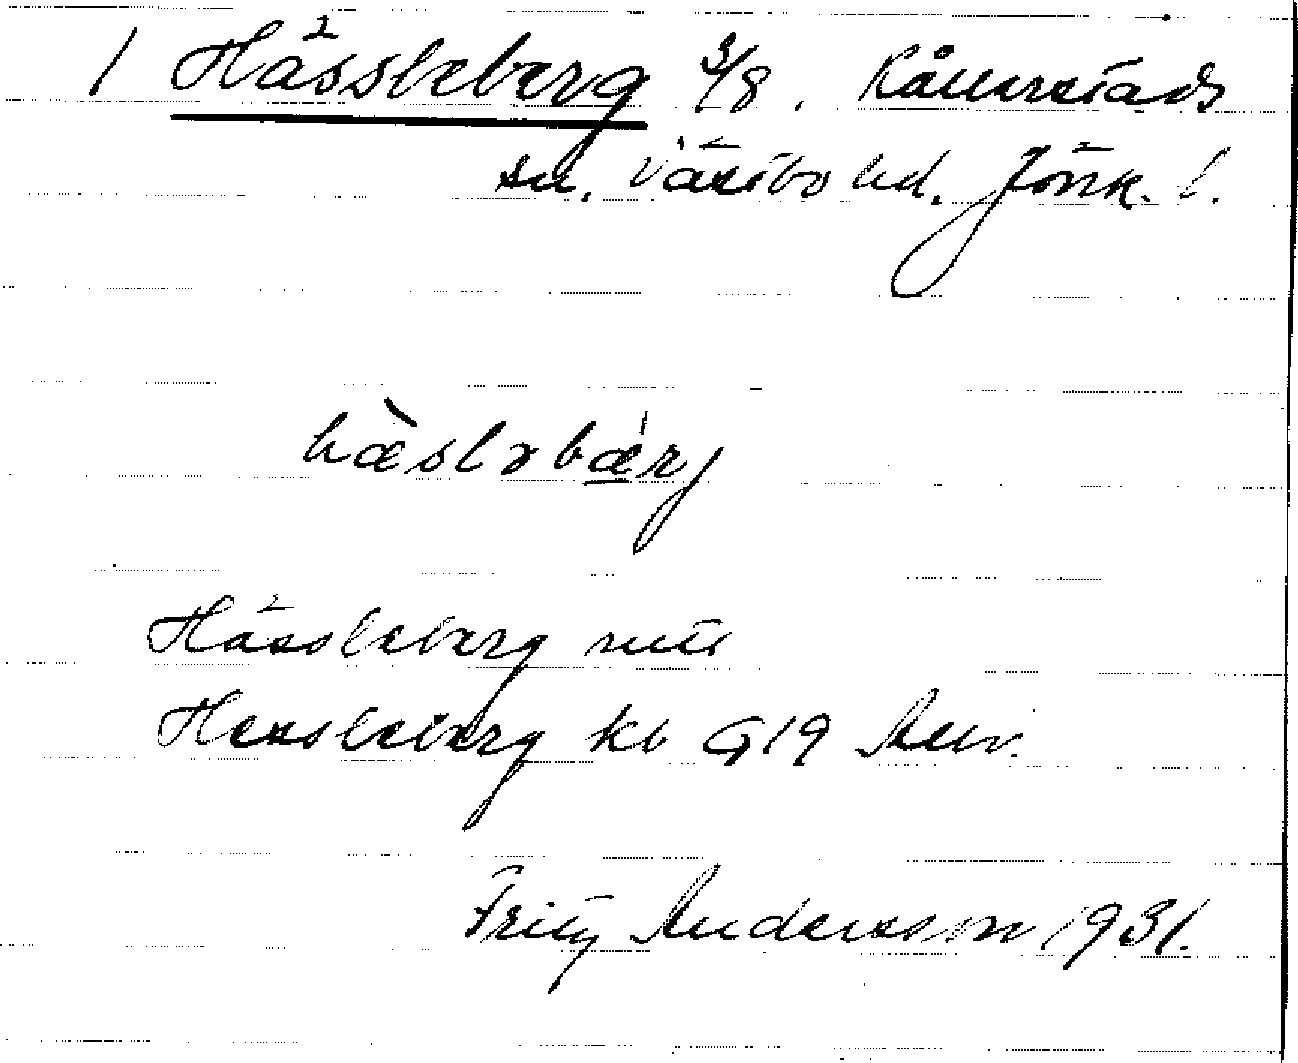 1 Hässleberg 3/8. Kållerstads
sn. Västbo hd. Jönk. l.
hæ̀sləbæ̀rj
Hässleberg
Hessleberg kb G19
Fritz Andersson 1931.